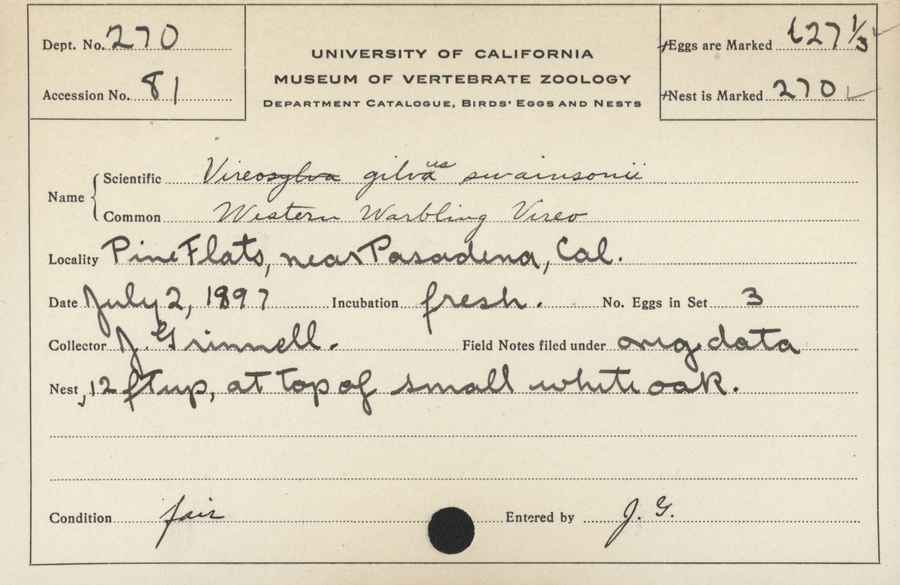 Dept. No. 270
Accession No. 81
UNIVERSITY OF CALIFORNIA
MUSEUM OF VERTEBRATE ZOOLOGY
DEPARTMENT CATALOGUE, BIRDS' EGGS AND NESTS
Eggs are Marked 627 1/3
Nest is Marked 270
Name
Scientific Vireosylva gilvaus swainsonii
Common Western Warbling Vireo
Locality Pine Flats, near Pasadena, Cal.
Date July 2, 1897 Incubation fresh. No. Eggs in Set 3
Collector J. Grinnell. Field Notes filed under orig. data
Nest, 12 ft up, at top of small white oak.
Condition fair Entered by J. G.